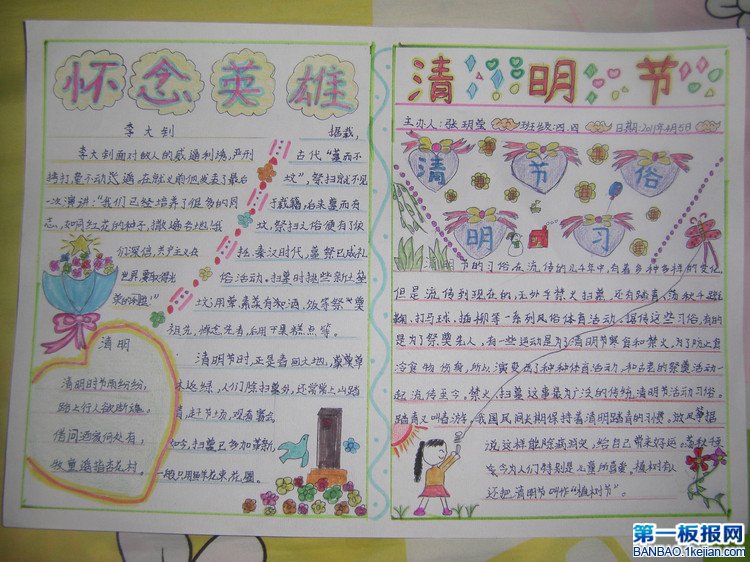 怀念英雄
李大钊
李大钊面对敌人的威逼利诱,严刑
拷打毫不动容。在就义前他发表了最后
一次演讲:“我们已经培养了很多的同
志,如同红花的种子,撒遍各地!我
们深信,共产主义在
世界
清明
清明时节雨纷纷,
路上行人欲断魂。
借问酒家何处有,
牧童遥指杏花村。
据载,
古代“墓而不
坟”,祭扫就不见
于载籍,后来墓而有
坟,祭扫之俗便有了依
托。秦汉时代,墓祭已成礼
俗活动。扫墓时按些新土墓
坟,用荤素菜肴和酒,饭等祭“奠
祖先,悼念先者,后用干果糕点等。
清明节时,正是春回大地,
人们除扫墓外,还常常上山踏
青,赶节场,观看赛会
如今,扫墓已多加革新,
一般只用鲜花束花圈。
清明节
主办人:张玥莹 班级:四.四 日期:2019年4月5日
清 节 俗
明 习
节的习俗在流传的几千年中,有着多种多样的变化,
但是流传到现在的,无外乎焚火扫墓,还有踏青、荡秋千、蹴
鞠、打马球、插柳等一系列风俗体育活动。据传这些习俗,有的
是为了祭奠先人,有一些运动是为了清明节寒食和禁火,为了防止寒
冷食物伤身,所以演变成了种种体育活动,和古老的祭奠活动一
起流传至今。禁火、扫墓这事最为广泛的传统清明节活动习俗。
踏青又叫春游。我国民间长期保持着清明踏青的习惯。放风筝据
说这样能除病消灾,给自己带来好运。荡秋千
至今为人们特别是儿童所喜爱。植树有人
还把清明节叫作“植树节”。
第一板报网
BANBAO.1kejian.com